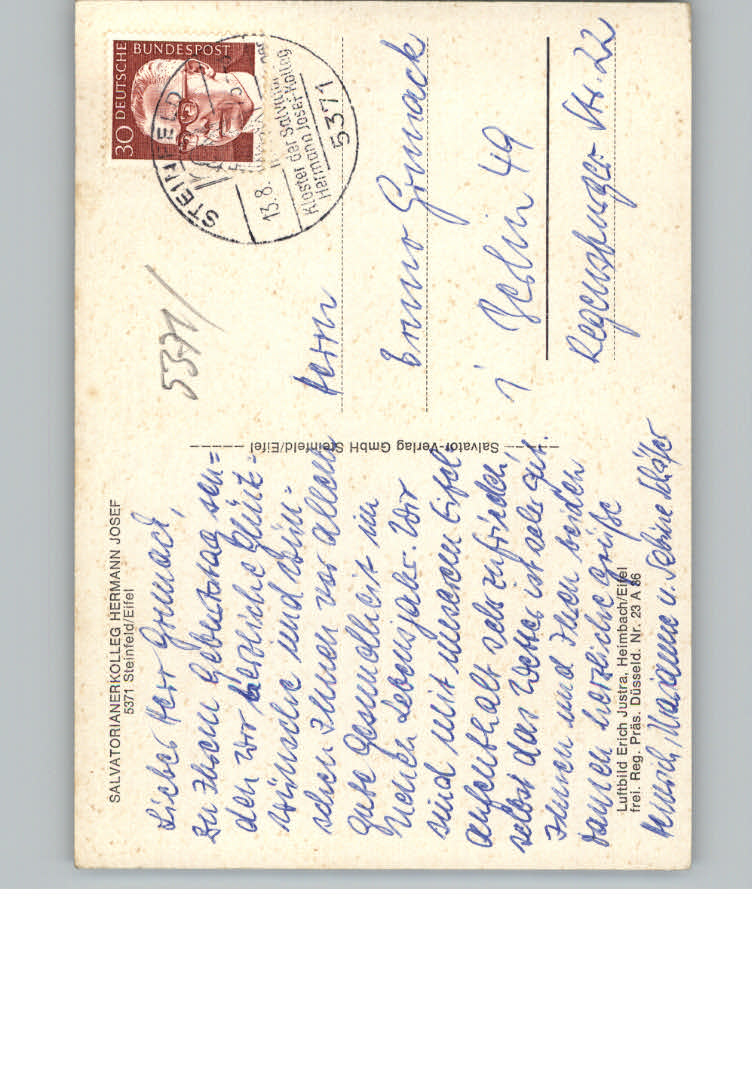 SALVATORIANERKOLLEG HERMANN JOSEF
5371 Steinfeld/Eifel
Lieber Herr Grmack,
Zu Ihrem Geburtstag sen=
den wir herzliche Glück=
wünsche und wün-
schen Ihnen vor allem
gute Gesundheit im
neuen Lebensjahr. Wir
sind mit unserem Eifel
aufenthalt sehr zufrieden,
selbst das Wetter ist sehr gut.
Ihnen und Ihren beiden
Damen herzliche Grüße
Marianne u. Sabine Schäfer
Luftbild Erich Justra, Heimbach/Eifel
frei. Reg. Präs. Düsseld. Nr. 23 A 86
Salvator-Verlag GmbH Steinfeld/Eifel
30 DEUTSCHE BUNDESPOST
STEINFELD
13.8.
Kloster der Salvator
Hermann Josef-Kolleg
5371
5371
Herrn
Bruno Grmack
1 Berlin 49
Regensburger Str. 22